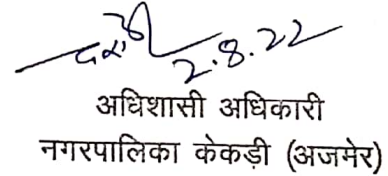 2.8.22
अधिशासी अधिकारी
नगरपालिका केकड़ी (अजमेर)